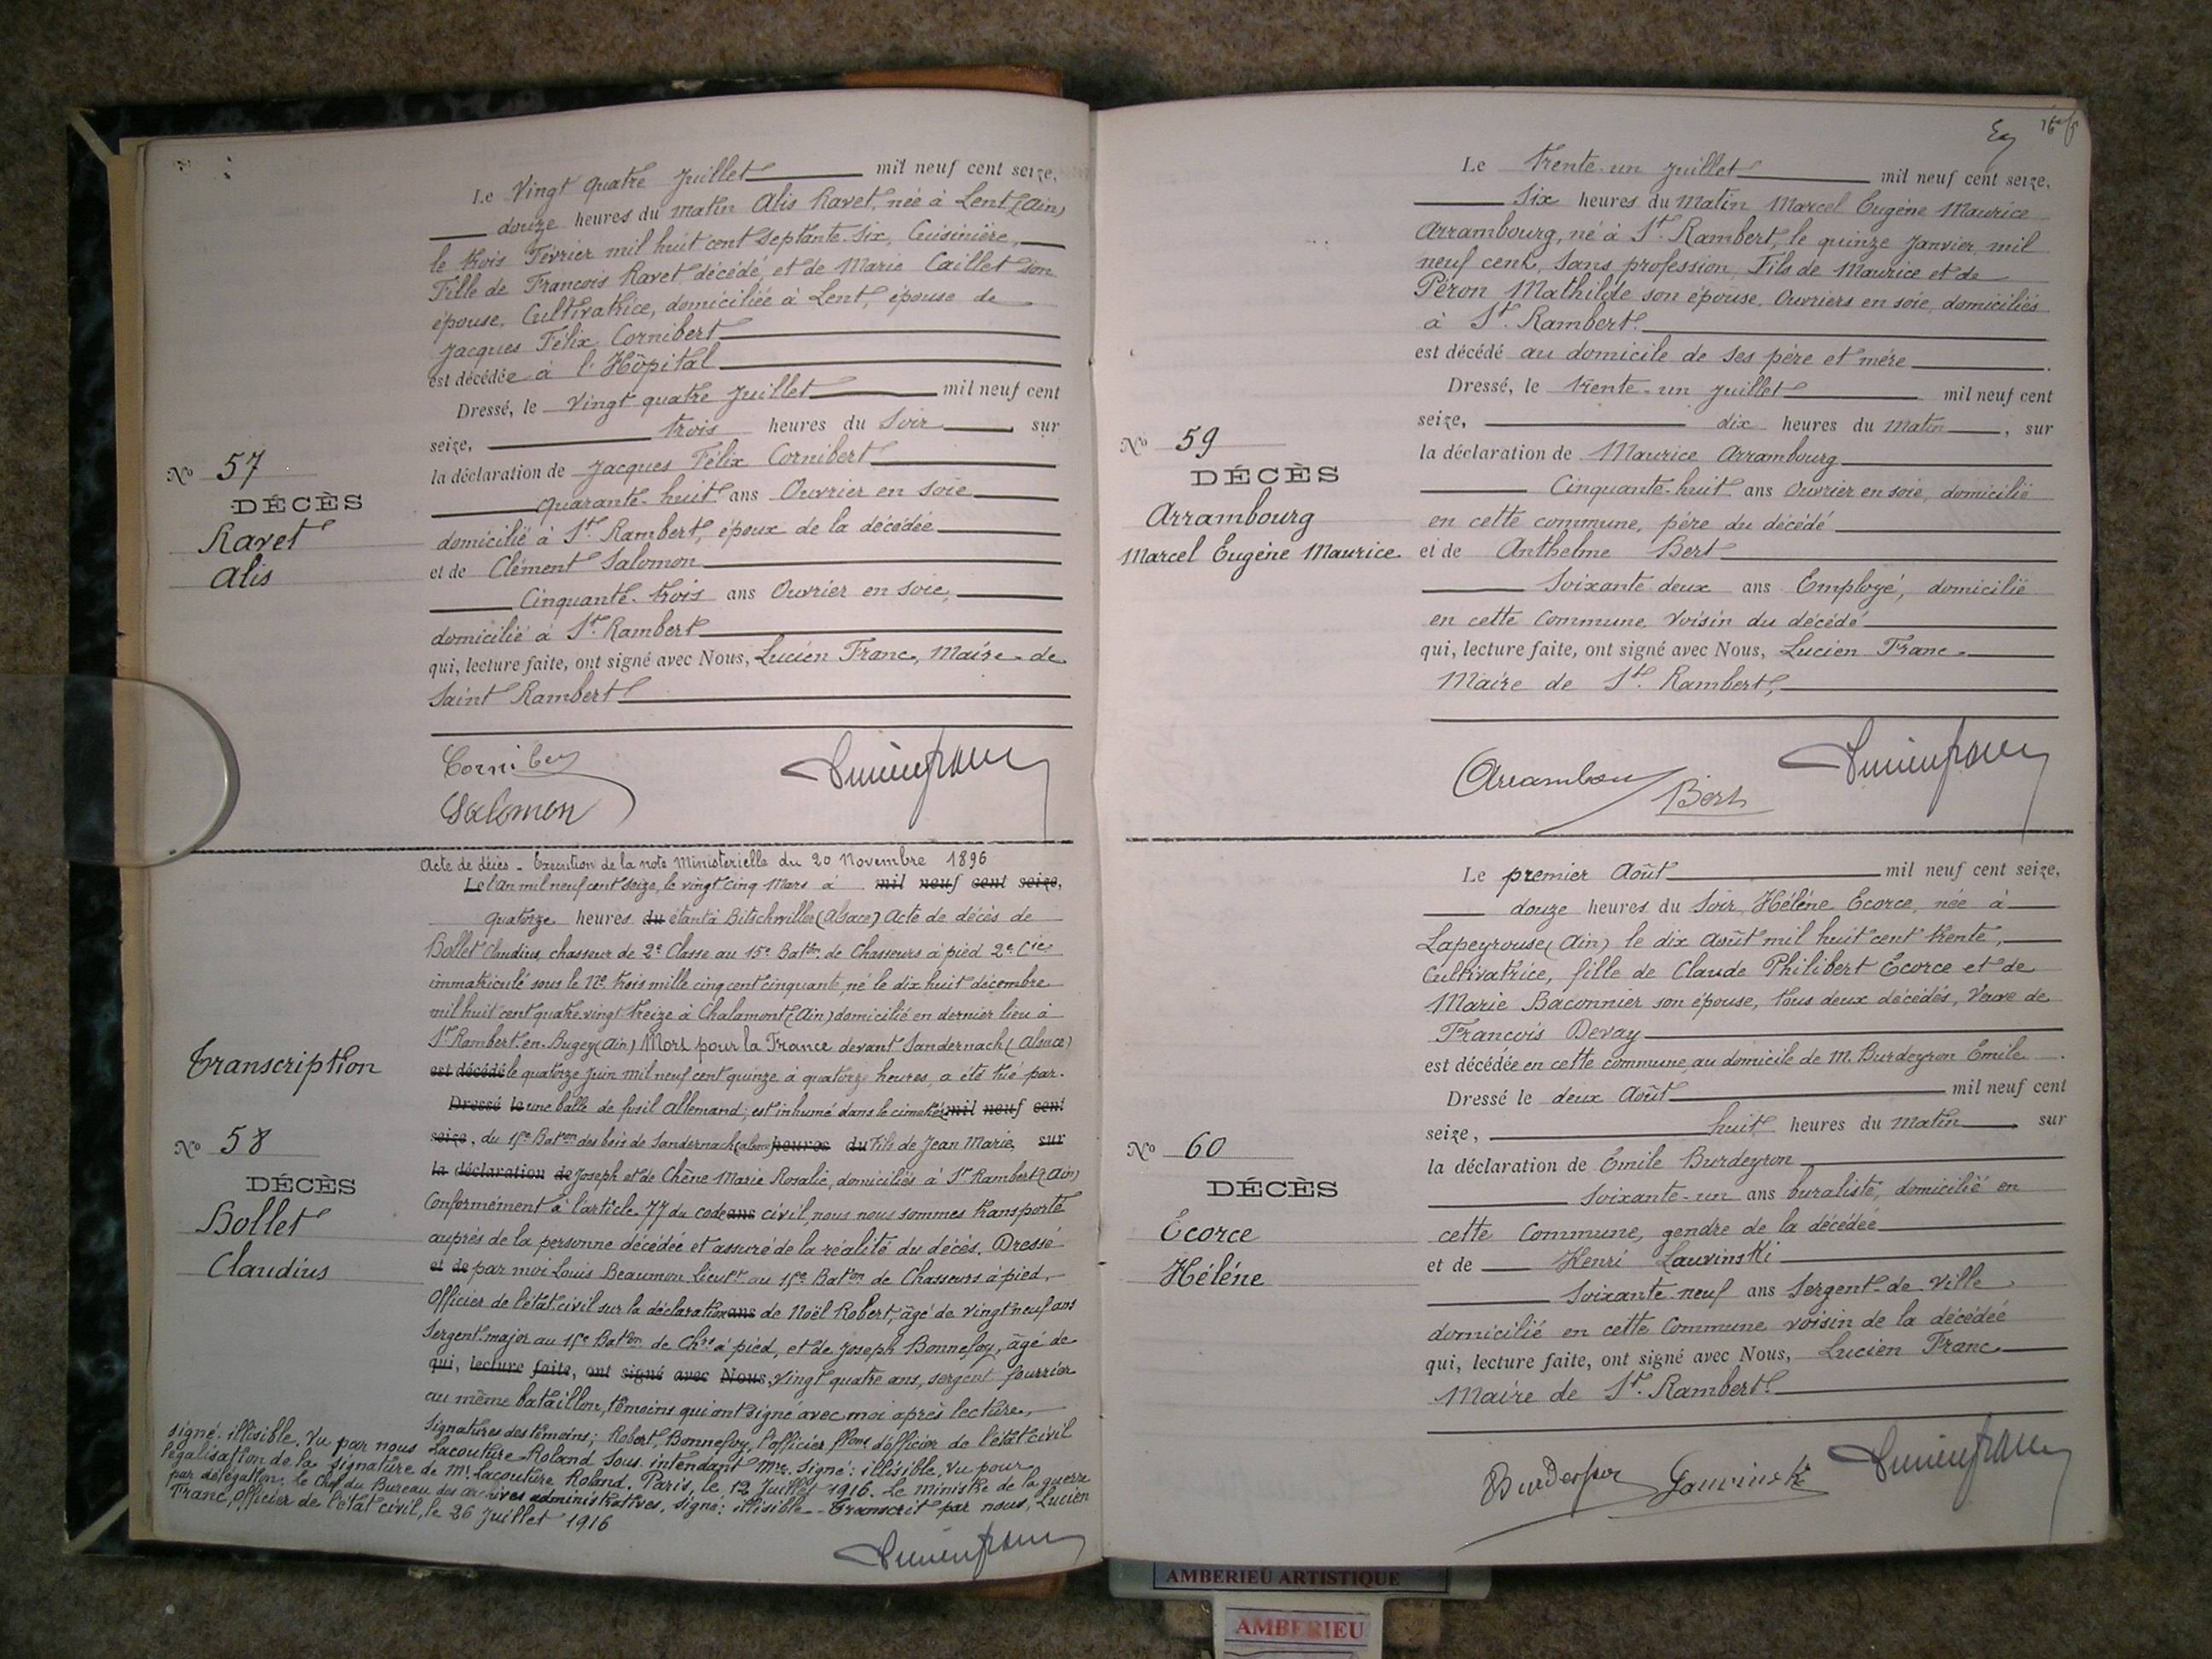 Le Vingt quatre Juillet mil neuf cent seize,
douze heures du matin Alis Ravet, née à Lent (Ain)
le trois Février mil huit cent septante-six, Cuisinière,
Fille de Francois Ravet décédé, et de Marie Caillet son
épouse, Cultivatrice, domiciliée à Lent, épouse de
Jacques Félix Cornibert
est décédée à l'Hôpital
Dressé, le Vingt quatre Juillet mil neuf cent
seize, trois heures du Soir, sur
la déclaration de Jacques Félix Cornibert
quarante-huit ans Ouvrier en soie
domicilié à St. Rambert, époux de la décédée
et de Clément Salomon
Cinquante-trois ans Ouvrier en soie,
domicilié à St. Rambert
qui, lecture faite, ont signé avec Nous, Lucien Franc, Maire de
Saint Rambert
No 57
DÉCÈS
Ravet
Alis
Salomon
Acte de décès - Execution de la note Ministerielle du 20 Novembre 1896
Le l'an mil neuf cent seize, le vingt cinq Mars à mil neuf cent seize,
quatorze heures du étant à Bitschwiller (Alsace) Acte de décès de
Bollet Claudius, chasseur de 2e Classe au 15e Baton de Chasseurs à pied 2e Cie
immatriculé sous le No trois mille cinq cent cinquante, né le dix huit décembre
mil huit cent quatre vingt treize à Chalamont (Ain) domicilié en dernier lieu à
St Rambert-en-Bugey (Ain) Mort pour la France devant Sandernach (Alsace)
est décédé le quatorze Juin mil neuf cent quinze à quatorze heures, a été tué par
Dressé le une balle de fusil allemand; est inhumé dans le cimetière mil neuf cent
seize, du 15e Baton des bois de Sandernach heures du Fils de Jean Marie, sur
la déclaration de Joseph et de Chêne Marie Rosalie, domiciliés à St Rambert (Ain)
Conformément à l'article 77 du code ans civil, nous nous sommes transporté
auprès de la personne décédée et assuré de la réalité du décès, Dressé
et de par moi Louis Beaumon Lieutt au 15e Baton de Chasseurs à pied,
Officier de l'état civil sur la déclaration ans de Noël Robert, âgé de vingt neuf ans
Sergent-major au 15e Baton de Chrs à pied, et de Joseph Bonnefoy, âgé de
qui, lecture faite, ont signé avec Nous, vingt quatre ans, sergent fourrier
au même bataillon, témoins qui ont signé avec moi après lecture,
Signatures des témoins; Robert, Bonnefoy, l'officier d'officier de l'état civil
signé: illisible. Vu par nous Lacouture Roland Sous intendant Mre. Signé: illisible, Vu pour
légalisation de la signature de Mr. Lacouture Roland. Paris, le 12 Juillet 1916. Le ministre de la guerre
par délégation. le Chef du Bureau des archives administratives, signé: illisible - Transcrit par nous, Lucien
Franc, Officier de l'état civil, le 26 Juillet 1916
Transcription
No 58
DÉCÈS
Bollet
Claudius
Le trente-un Juillet mil neuf cent seize,
Six heures du Matin Marcel Eugène Maurice
Arrambourg, né à St. Rambert, le quinze Janvier mil
neuf cent, Sans profession, Fils de Maurice et de
Péron Mathilde son épouse, Ouvriers en soie, domiciliés
à St. Rambert
est décédé au domicile de ses père et mère
Dressé, le trente-un Juillet mil neuf cent
seize, dix heures du Matin, sur
la déclaration de Maurice Arrambourg
Cinquante-huit ans Ouvrier en soie, domicilié
en cette commune, père du décédé
et de Anthelme Bert
Soixante deux ans Employé, domicilié
en cette Commune, voisin du décédé
qui, lecture faite, ont signé avec Nous, Lucien Franc
Maire de St. Rambert,
No 59
DÉCÈS
Arrambourg
Marcel Eugène Maurice
Bert
Le premier Août mil neuf cent seize,
douze heures du Soir, Hélène Ecorce, née à
Lapeyrouse (Ain) le dix Août mil huit cent trente,
Cultivatrice, fille de Claude Philibert Ecorce et de
Marie Baconnier son épouse, tous deux décédés, Veuve de
Francois Devay
est décédée en cette commune, au domicile de M. Burdeyron Emile
Dressé le deux Août mil neuf cent
seize, huit heures du Matin sur
la déclaration de Émile Burdeyron
Soixante-un ans buraliste, domicilié en
cette Commune, gendre de la décédée
et de Henri Lauvinski
Soixante-neuf ans Sergent-de-Ville
domicilié en cette Commune voisin de la décédée
qui, lecture faite, ont signé avec Nous, Lucien Franc
Maire de St. Rambert
No 60
DÉCÈS
Écorce
Hélène
AMBERIEU ARTISTIQUE
AMBERIEU